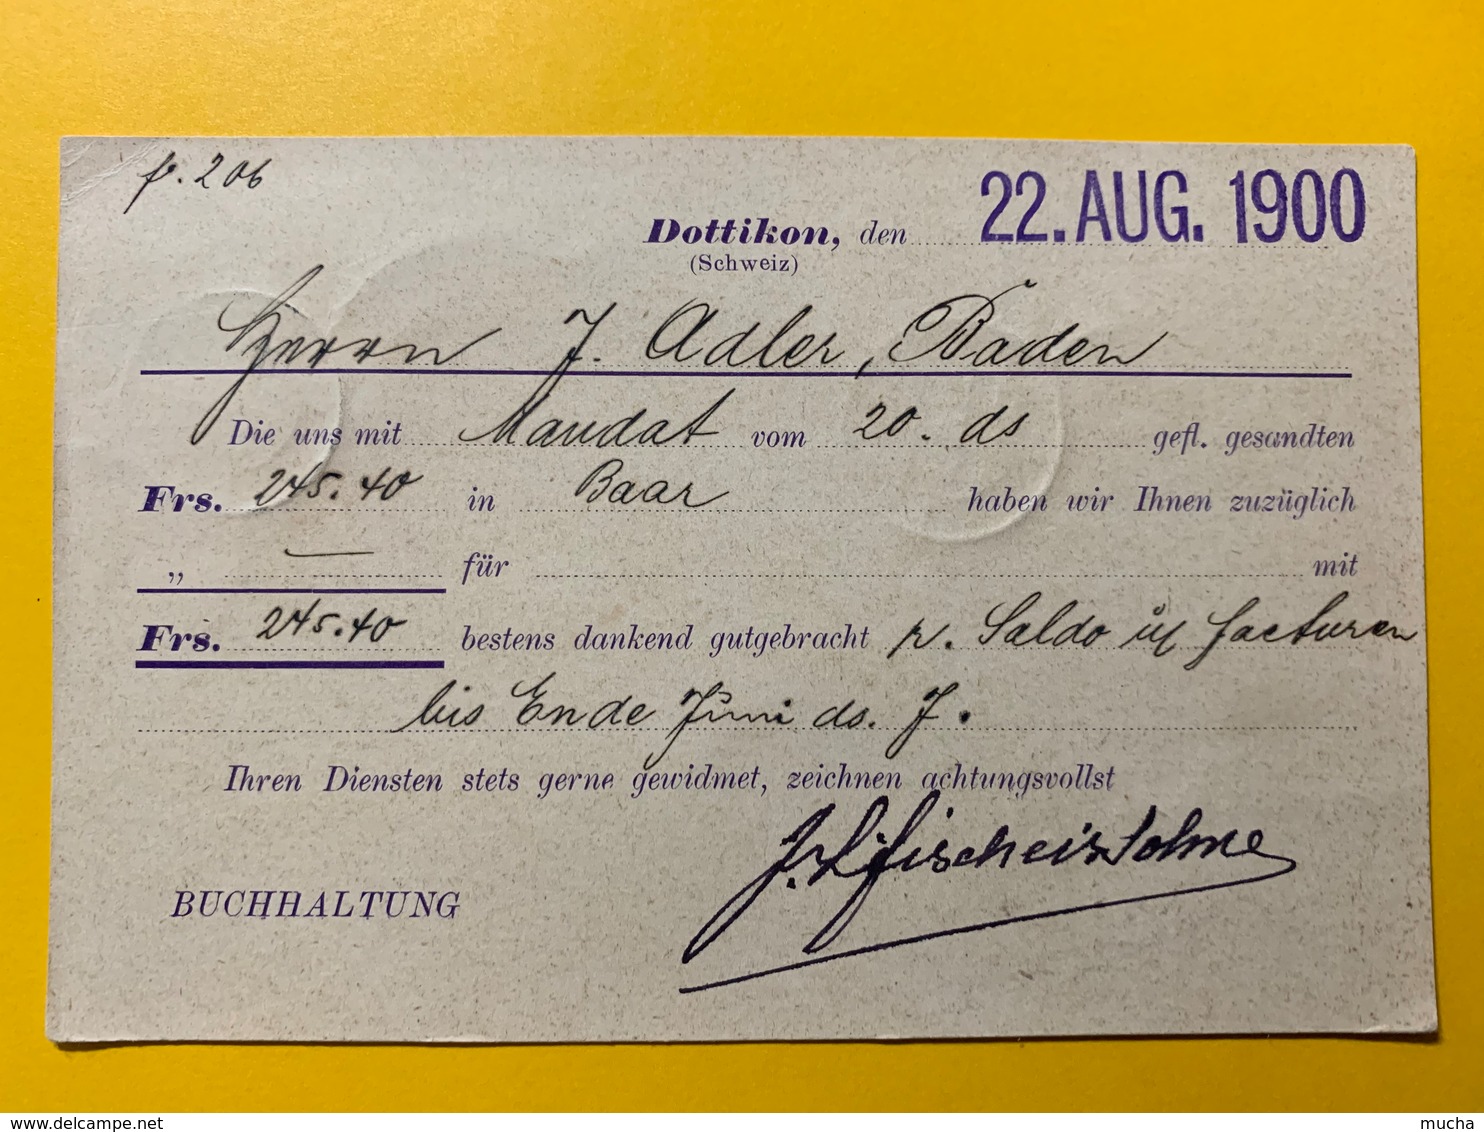 f. 206
Dottikon, den 22. AUG. 1900
(Schweiz)
Herrn J. Adler, Baden
Die uns mit Mandat vom 20. ds gefl. gesandten
Frs. 245.40 in Baar haben wir Ihnen zuzüglich
„ — für mit
Frs. 245.40 bestens dankend gutgebracht p. Saldo Facturen
bis Ende Juni ds. J.
Ihren Diensten stets gerne gewidmet, zeichnen achtungsvollst
Fischer's Söhne
BUCHHALTUNG
delcampe.net
mucha